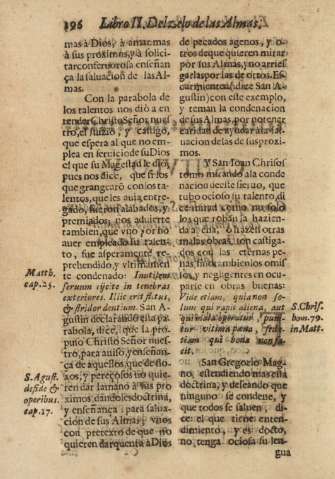 196 Libro II. Del zelo de las Almas,
mas à Dios, à amar mas
à sus proximos, y à solici-
tar con fervorosa enseñan
ça la saluacion de las Al-
mas.
Con la parabola de
los talentos nos diò à en-
tender Christo Señor nues
tro, el juizio, y castigo,
que espera al que no em-
plea en seruicio de su Dios
el que su Magestad le diò,
pues nos dice, que si los
que grangearõ con los ta-
lentos, que les auia entre-
gado, fueron alabados, y
premiados; nos aduierte
tambien, que vno por no
auer empleado su talen-
to, fue asperamente re-
prehendido, y vltimamen
te condenado: Inutilem
seruum eijcite in tenebras
exteriores. Illic erit fletus,
& stridor dentium. San A-
gustin declarando esta pa-
rabola, dice, que la pro-
puso Christo Señor nues-
tro, para auiso, y enseñan-
ça de aquellos que de flo-
xos, y pereçosos no quie-
ren dar la mano à sus pro
ximos, dandoles doctrina,
y enseñança para salua-
cion de sus Almas; vnos
con pretexto de que no
quieren dar quenta à Dios
Matth.
cap. 25.
S. Agust.
de fide &
operibus.
cap. 17.
de pecados agenos, y o-
tros de que quieren mirar
por sus Almas, y no arries
garlas por las de otros. Es-
carmienten (dice San A-
gustin) con este exemplo,
y teman la condenacion
de sus Almas, por no tener
caridad de ayudar à la sal-
uacion de las de sus proxi-
mos.
Y San Ioan Chrisos
tomo mirando à la conde
nacion de este sieruo, que
tubo ocioso su talento, di-
ce:
los que roban la hazien-
da a
malas obras, son castiga-
dos con las eternas pe-
nas, sino tambien los omis
sos, y negligentes en ocu-
parse en obras buenas:
Vide etiam, quia non so-
lum qui rapit aliena, aut
qui mala operatur, puni-
tur vltima pœna, sed e-
tiam qui bona non fa-
cit.
San Gregorio Mag-
no, estendiendo mas esta
doctrina, y deseando que
ninguno se condene, y
que todos se saluen, di-
ce: el que tiene enten-
dimiento, y es docto,
no tenga ociosa su len-
gua
S. Chris.
hom. 79.
in Matt.